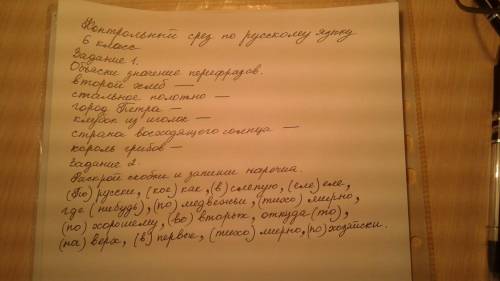 Контрольный срез по русскому языку
6 класс
Задание 1.
Объясни значение перифразов.
второй хлеб —
стальное полотно —
город Петра —
клубок из иголок —
страна восходящего солнца —
король грибов —
Задание 2
Раскрой скобки и запиши наречия.
(По) русски, (кое) как, (в) слепую, (еле) еле,
где (нибудь), (по) медвежьи, (тихо) мирно,
(по) хорошему, (во) вторых, откуда (то),
(на) верх, (в) первые, (тихо) мирно, (по) хозяйски.